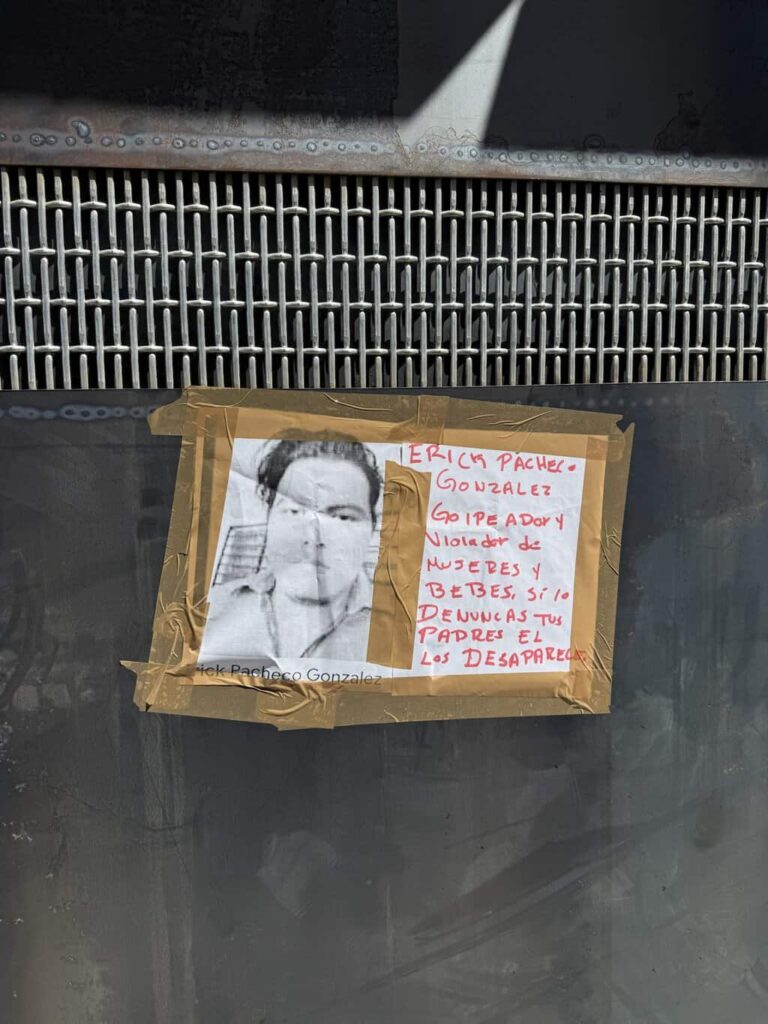 ERICK PACHECO
GONZALEZ
GOLPEADOR Y
Violador de
MUJERES Y
BEBES, Si lo
DENUNCAS TUS
PADRES EL
LOS DESAPARECE.
rick Pacheco Gonzalez